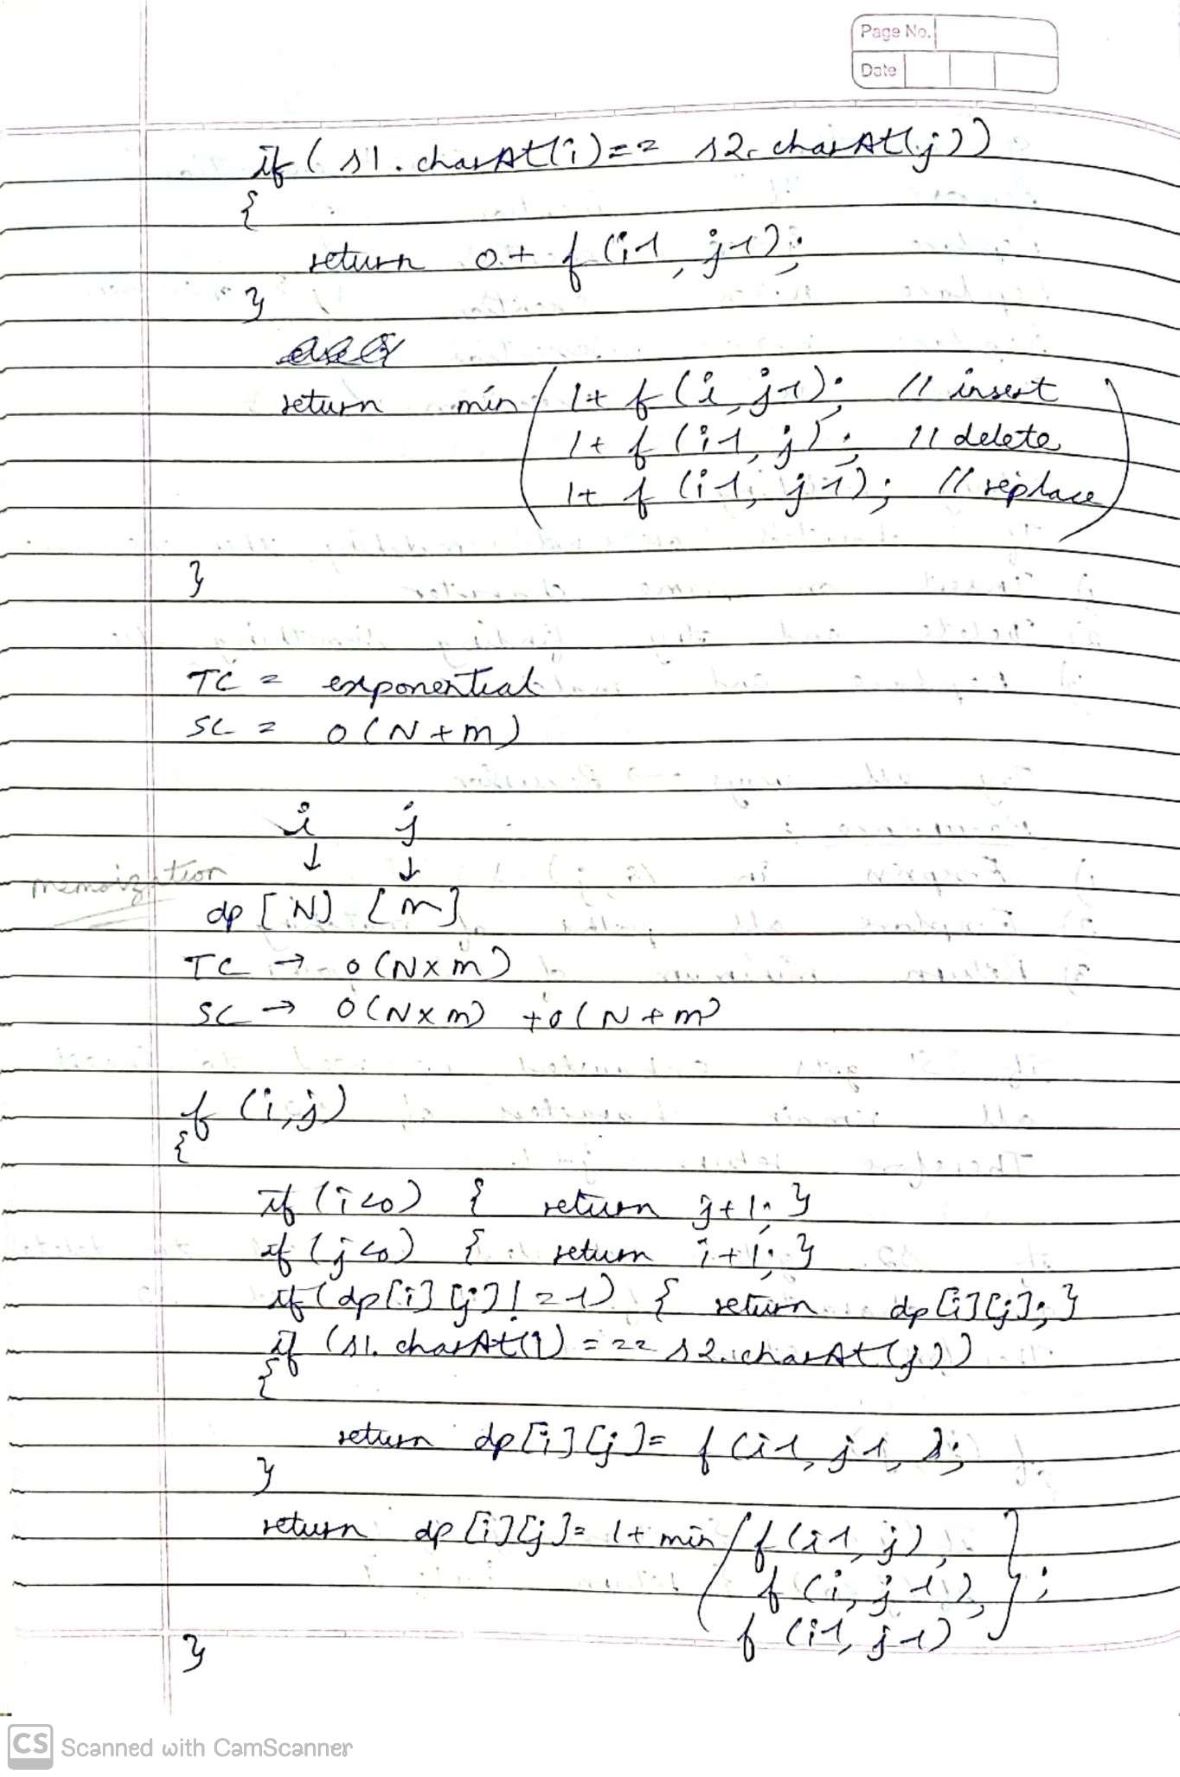 Page No.
Date
if (s1.charAt(i)== s2.charAt(j))
{
return 0+ f(i-1, j-1);
}
return min( 1+ f(i, j-1); // insert
1+ f(i-1, j); // delete
1+ f(i-1, j-1); // replace)
}
TC = exponential
SC = O(N+m)
i j
↓ ↓
memoization
dp[N] [m]
TC → O(N×m)
SC → O(N×m) +O(N+m)
f(i,j)
{
if (i<0) { return j+1; }
if (j<0) { return i+1; }
if (dp[i][j]!=-1) { return dp[i][j]; }
if (s1.charAt(i) === s2.charAt(j))
{
return dp[i][j]= f(i-1, j-1, );
}
return dp[i][j]= 1+ min(f(i-1, j),
f(i, j-1),
f(i-1, j-1));
}
CS Scanned with CamScanner